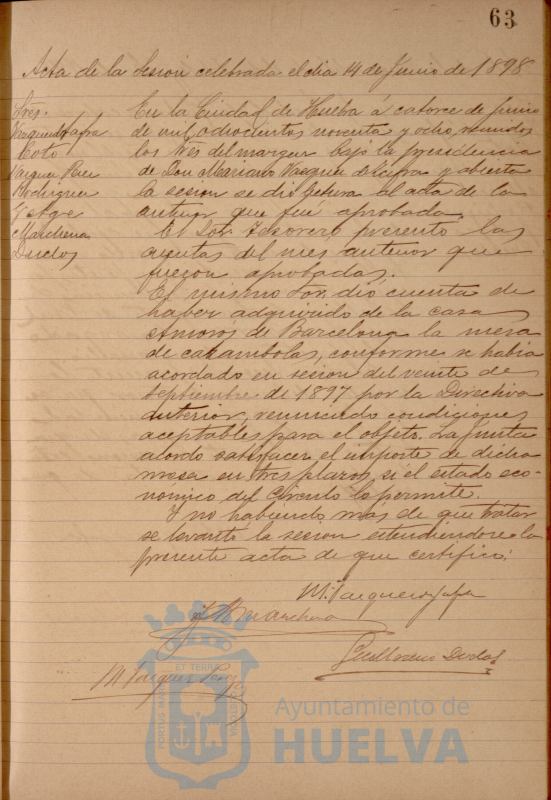 63
Acta de la Sesion celebrada el dia 14 de Junio de 1898
Sres.
Vazquez Zafra
Coto
Vazquez Perez
Rodriguez
Marchena
Duclos
En la Ciudad de Huelva á catorce de Junio
de mil ochocientos noventa y ocho, reunidos
los Sres del margen bajo la presidencia
de Don Mariano Vazquez Zafra y abierta
la sesion se dio lectura al acta de la
anterior que fué aprobada.
El Sor. Tesorero presento las
cuentas del mes anterior que
fueron aprobadas.
El mismo Sor. dio cuenta de
haber adquirido de la casa
Amorós de Barcelona la mesa
de carambolas, conforme se habia
acordado en sesion del veinte de
Septiembre de 1897 por la Directiva
anterior, reuniendo condiciones
aceptables para el objeto. La Junta
acordo satisfacer el importe de dicha
mesa en tres plazos, si el estado eco-
nómico del Circulo lo permite.
Y no habiendo más de que tratar
se levantó la sesion estendiendose la
presente acta de que certifico.
M. Vazquez Zafra
J. Marchena
Guillermo Duclos
M. Vazquez Perez
PORTUS MARIS ET TERRAE CUSTODIA
Ayuntamiento de
HUELVA